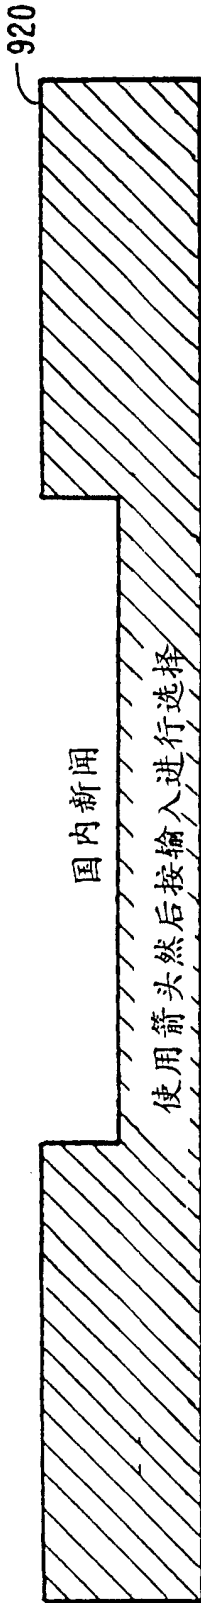 920
国内新闻
使用箭头然后按输入进行选择